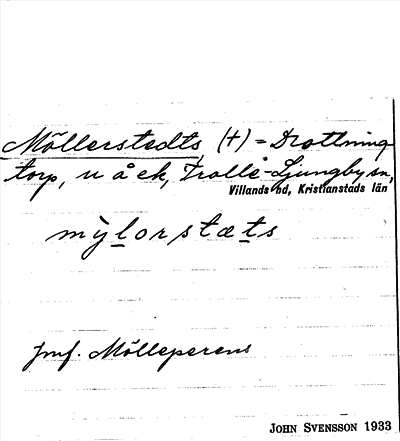 Möllerstedts (†) = Drottning-
torp, u å ek, Trolle-Ljungby sn,
Villands hd, Kristianstads län
mỳlorstæts
Jmf. Mölleperens
JOHN SVENSSON 1933